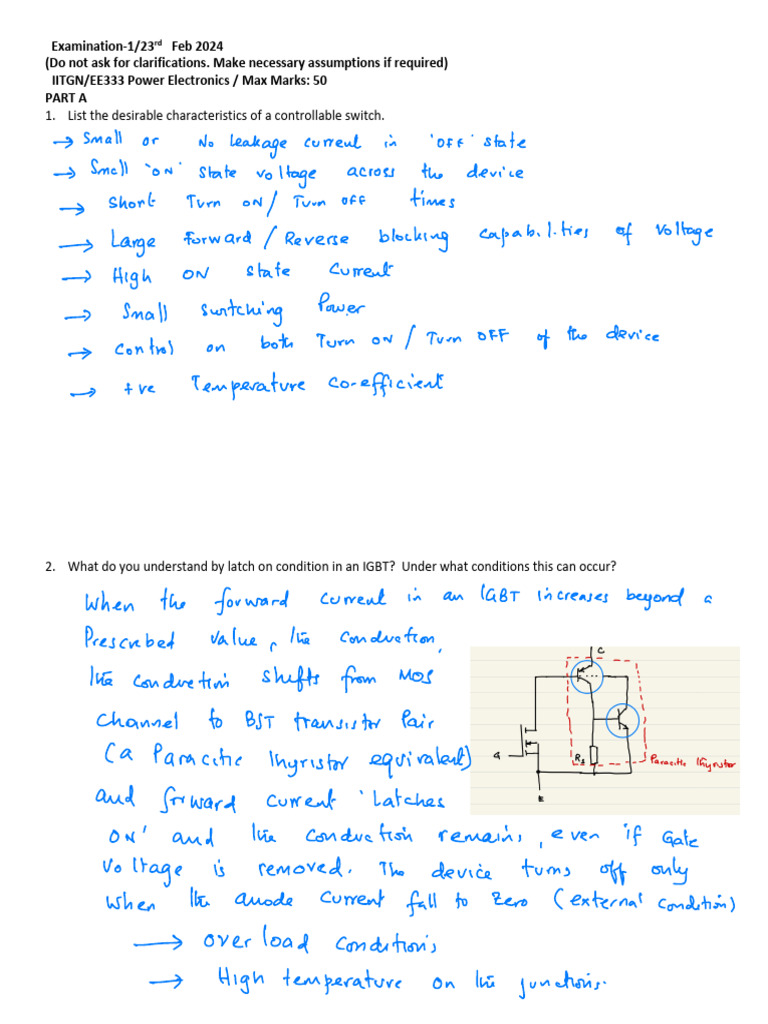 Examination-1/23rd Feb 2024
(Do not ask for clarifications. Make necessary assumptions if required)
IITGN/EE333 Power Electronics / Max Marks: 50
PART A
1. List the desirable characteristics of a controllable switch.
→ Small or No leakage current in 'OFF' state
→ Small 'ON' State voltage across the device
→ Short Turn ON / Turn OFF times
→ Large forward / Reverse blocking capabilities of voltage
→ High ON state current
→ Small switching Power
→ Control on both Turn ON / Turn OFF of the device
→ +ve Temperature co-efficient
2. What do you understand by latch on condition in an IGBT? Under what conditions this can occur?
When the forward current in an IGBT increases beyond a
Prescribed value, the conduction,
the conduction shifts from MOS
channel to BJT transistor Pair
(a Paracitic thyristor equivalent)
and forward current 'Latches
ON' and the conduction remains, even if Gate
Voltage is removed. The device turns off only
when the anode current fall to zero (external condition)
→ overload conditions
→ High temperature on the junctions.
C
G
Paracitic thyristor
E